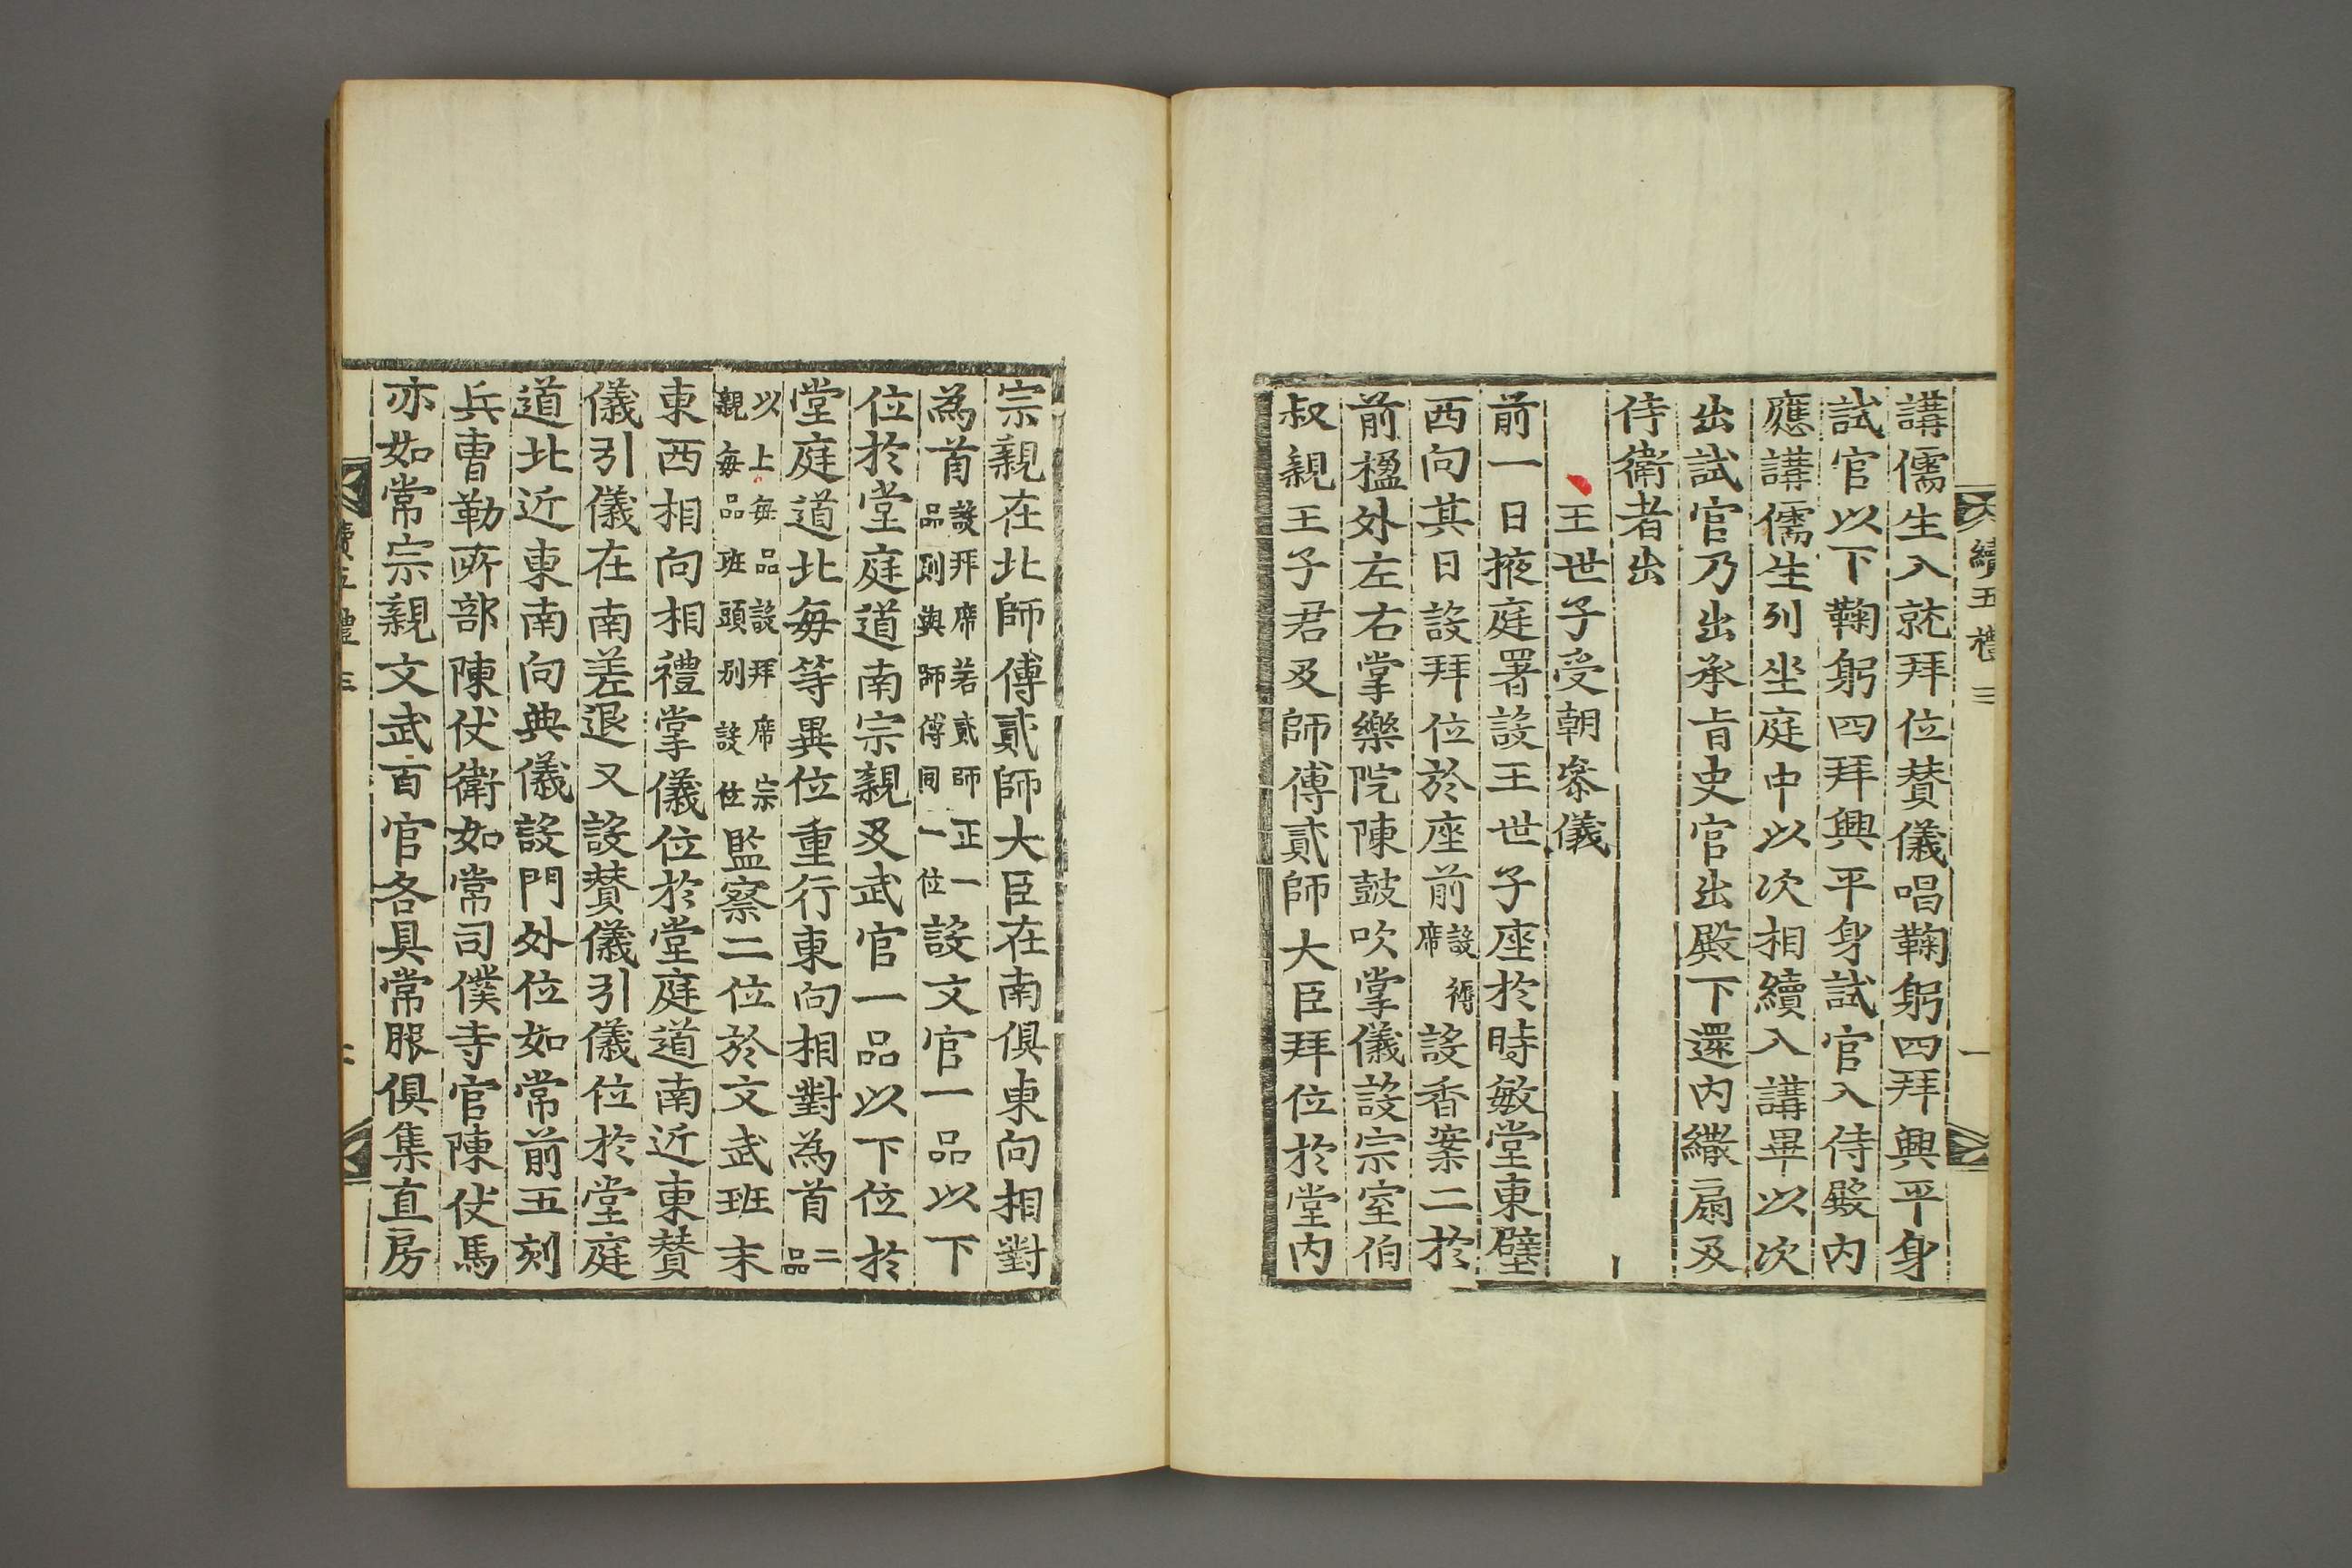 續五禮 三
一
講儒生入就拜位賛儀唱鞠躬四拜興平身
試官以下鞠躬四拜興平身試官入侍殿內
應講儒生列坐庭中以次相續入講畢以次
出試官乃出承旨史官出殿下還內繖扇及
侍衛者出
王世子受朝叅儀
前一日掖庭署設王世子座於時敏堂東壁
西向其日設拜位於座前設褥席設香案二於
前楹外左右掌樂院陳鼓吹掌儀設宗室伯
叔親王子君及師傅貳師大臣拜位於堂內
宗親在北師傅貳師大臣在南俱東向相對
為首設拜席若貳師正一品則與師傅同一位設文官一品以下
位於堂庭道南宗親及武官一品以下位於
堂庭道北每等異位重行東向相對為首二品
以上每品設拜席宗親每品班頭別設位監察二位於文武班末
東西相向相禮掌儀位於堂庭道南近東賛
儀引儀在南差退又設賛儀引儀位於堂庭
道北近東南向典儀設門外位如常前五刻
兵曹勒所部陳仗衛如常司僕寺官陳仗馬
亦如常宗親文武百官各具常服俱集直房
續五禮 三
二